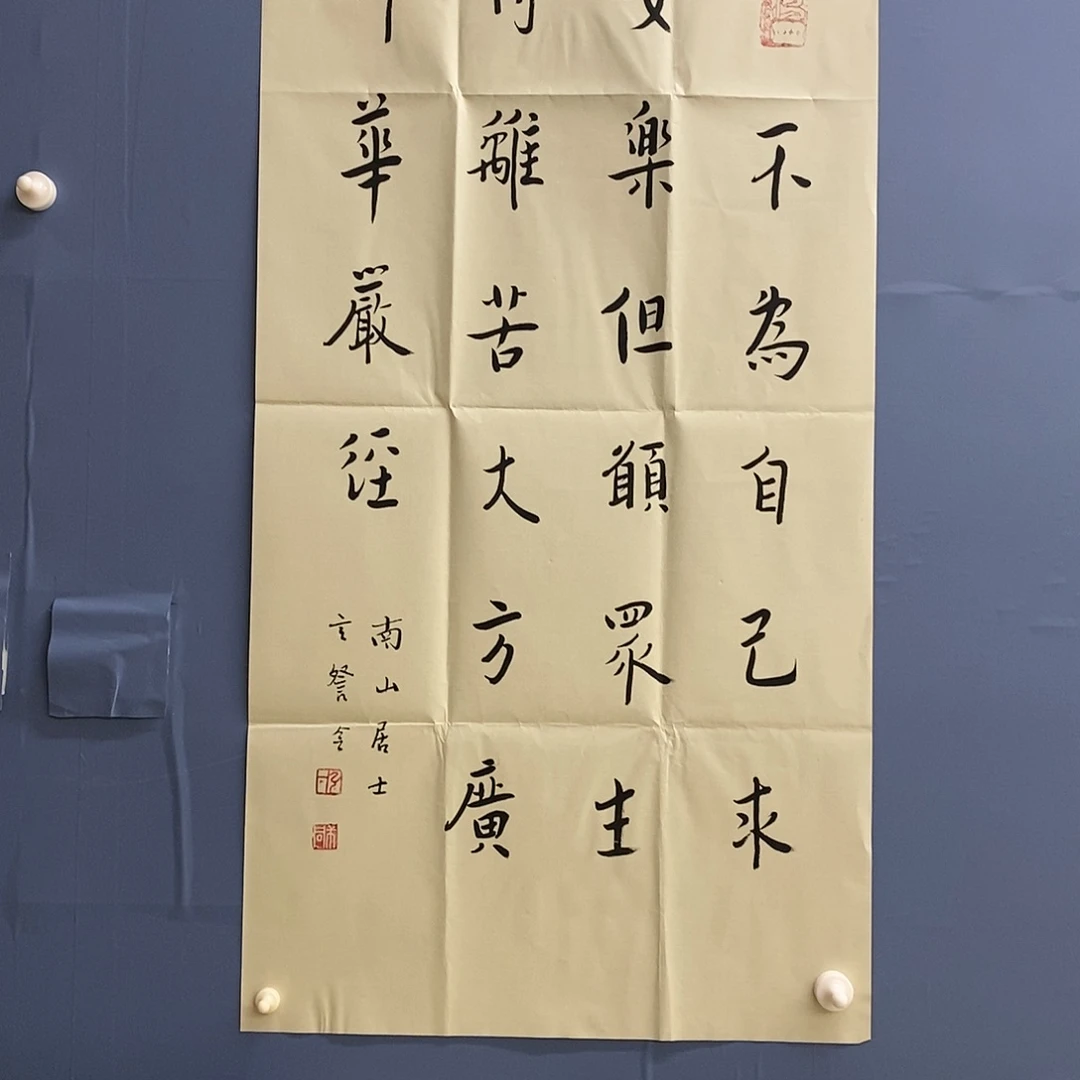 不為自己求
樂但願眾生
離苦大方廣
華嚴經
南山居士